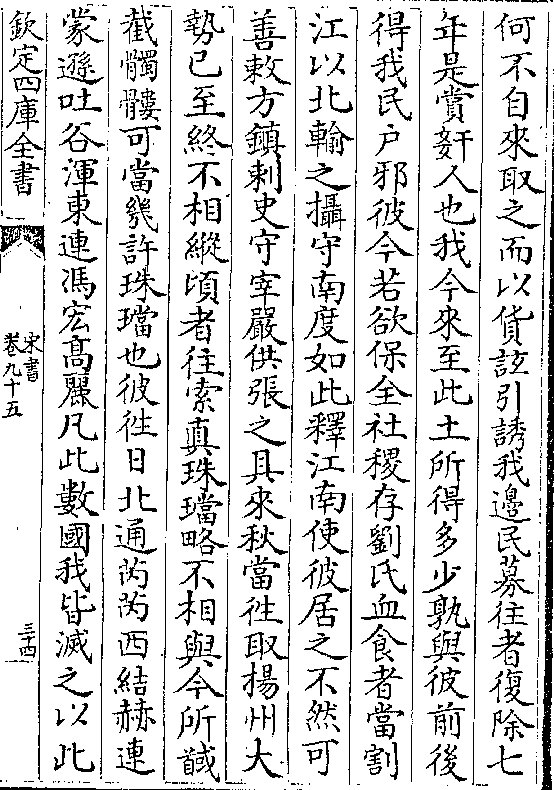 何不自來取之而以貨訹引誘我邊民募往者復除七
年是賞奸人也我今來至此土所得多少孰與彼前後
得我民戶邪彼今若欲保全社稷存劉氏血食者當割
江以北輸之攝守南度如此釋江南使彼居之不然可
善敕方鎮刺史守宰嚴供張之具來秋當往取揚州大
勢已至終不相縱頃者往索真珠璫略不相與今所馘
截髑髏可當幾許珠璫也彼往日北通芮芮西結赫連
蒙遜吐谷渾東連馮宏髙麗凡此數國我皆滅之以此
欽定四庫全書
宋書
卷九十五
三十四